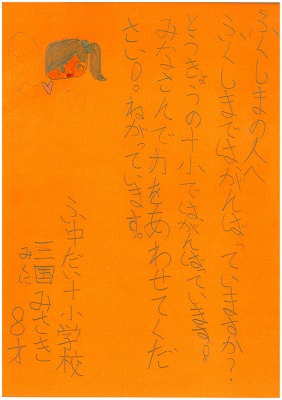 ふくしまの人へ
ふくしまではがんばっていますか？
とうきょうの十小ではがんばています。
みなさんで力をあわせてくだ
さい。ねがっています。
ふ中だい十小学校
三国みさき
みくに
8才